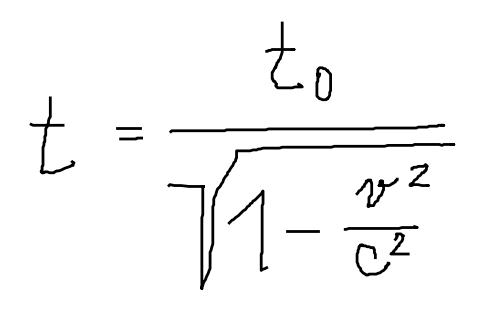 t = t₀ / √(1 − v²/c²)